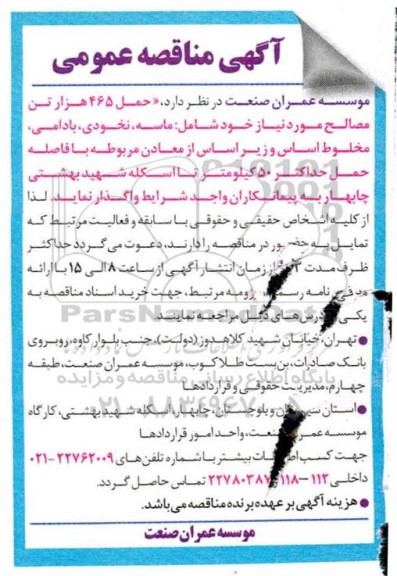 آگهی مناقصه عمومی
موسسه عمران صنعت در نظر دارد، «حمل ۴۶۵ هزار تن
مصالح مورد نیاز خود شامل: ماسه، نخودی، بادامی،
مخلوط اساس و زیر اساس از معادن مربوطه با فاصله
حمل حداکثر ۵۰ کیلومتر تا اسکله شهید بهشتی
چابهار به پیمانکاران واجد شرایط واگذار نماید. لذا
از کلیه اشخاص حقیقی و حقوقی با سابقه و فعالیت مرتبط که
تمایل به حضور در مناقصه را دارند، دعوت می گردد حداکثر
ظرف مدت از زمان انتشار آگهی از ساعت ۸ الی ۱۵ با ارائه
معرفی نامه رسمی مرتبط، جهت خرید اسناد مناقصه به
یکی آدرس های ذیل مراجعه نمایند.
● تهران، خیابان شهید کلاهدوز (دولت)، جنب بلوار کاوه، روبروی
بانک صادرات، بن بست طلاکوب، موسسه عمران صنعت، طبقه
چهارم، مدیریت حقوقی و قراردادها
● استان سیستان و بلوچستان، چابهار، اسکله شهید بهشتی، کارگاه
موسسه عمران صنعت، واحد امور قراردادها
جهت کسب اطلاعات بیشتر با شماره تلفن های ۲۲۷۶۲۰۰۹-۰۲۱
داخلی ۱۱۲ – ۱۱۸ ۲۲۷۸۰۳۸۷ تماس حاصل گردد.
● هزینه آگهی بر عهده برنده مناقصه می باشد.
موسسه عمران صنعت